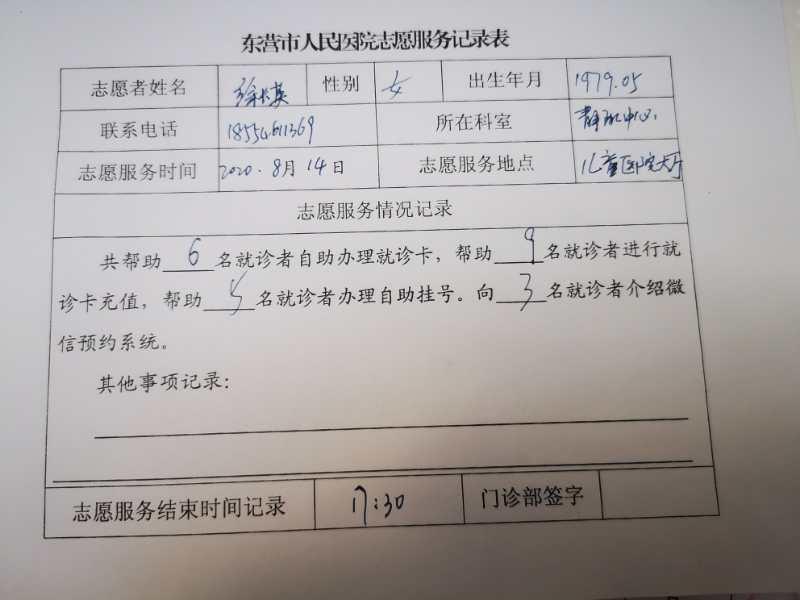 东营市人民医院志愿服务记录表
志愿者姓名 性别 女 出生年月 1979.05
联系电话 18554611369 所在科室 静配中心
志愿服务时间 2020.8月14日 志愿服务地点 儿童医院大厅
志愿服务情况记录
共帮助6名就诊者自助办理就诊卡，帮助9名就诊者进行就
诊卡充值，帮助5名就诊者办理自助挂号。向3名就诊者介绍微
信预约系统。
其他事项记录：
志愿服务结束时间记录 17:30 门诊部签字